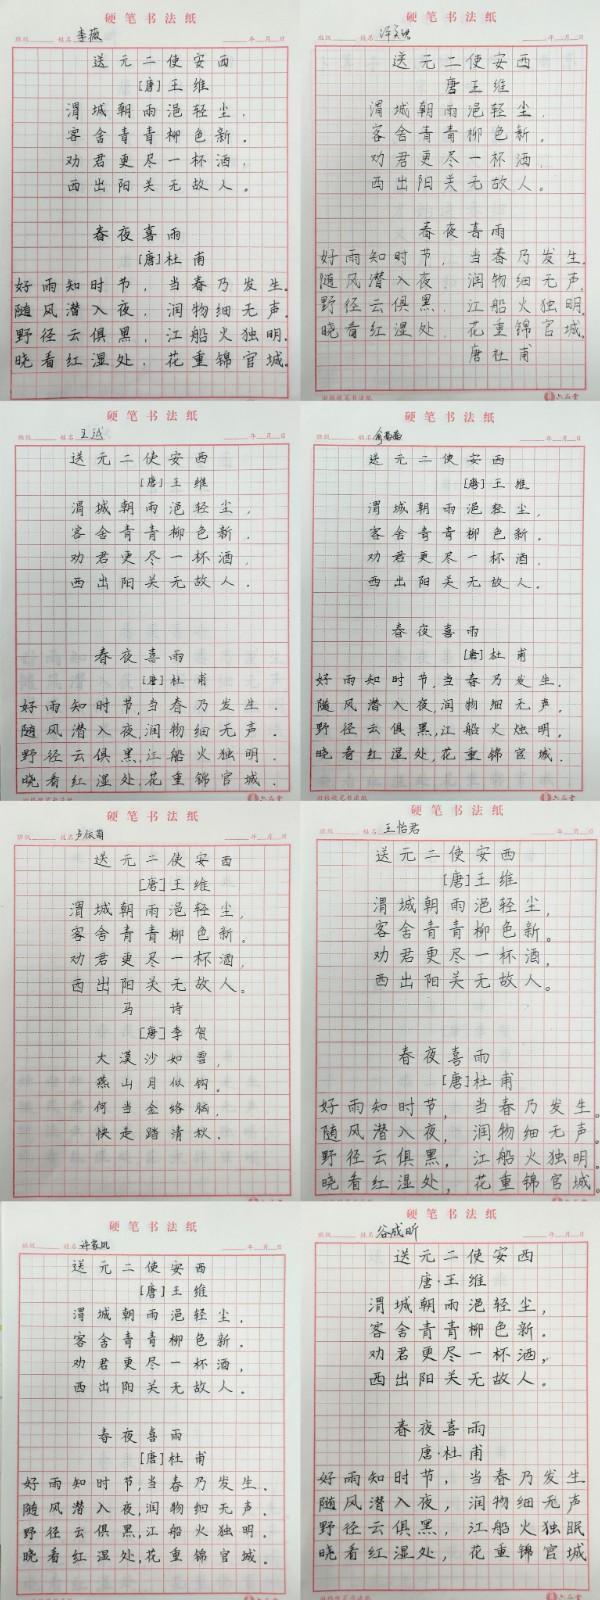 硬笔书法纸
班级 姓名 李薇 年 月 日
送元二使安西
[唐]王维
渭城朝雨浥轻尘，
客舍青青柳色新。
劝君更尽一杯酒，
西出阳关无故人。
春夜喜雨
[唐]杜甫
好雨知时节，当春乃发生。
随风潜入夜，润物细无声。
野径云俱黑，江船火独明。
晓看红湿处，花重锦官城。
硬笔书法纸
班级 姓名 年 月 日
送元二使安西
唐王维
渭城朝雨浥轻尘，
客舍青青柳色新。
劝君更尽一杯酒
西出阳关无故人。
春夜喜雨
好雨知时节，当春乃发生。
随风潜入夜，润物细无声。
野径云俱黑，江船火独明。
晓看红湿处，花重锦官城。
唐杜甫
六品堂
硬笔书法纸
班级 姓名 年 月 日
送元二使安西
[唐]王维
渭城朝雨浥轻尘，
客舍青青柳色新。
劝君更尽一杯酒，
西出阳关无故人。
春夜喜雨
[唐]杜甫
好雨知时节，当春乃发生。
随风潜入夜，润物细无声。
野径云俱黑，江船火独明。
晓看红湿处，花重锦官城。
硬笔书法纸
班级 姓名 年 月 日
送元二使安西
[唐]王维
渭城朝雨浥轻尘，
客舍青青柳色新。
劝君更尽一杯酒
西出阳关无故人。
春夜喜雨
[唐]杜甫
好雨知时节，当春乃发生。
随风潜入夜，润物细无声，
野径云俱黑，江船火烛明，
晓看红湿处，花重锦官城。
六品堂
硬笔书法纸
班级 姓名 年 月 日
送元二使安西
[唐]王维
渭城朝雨浥轻尘，
客舍青青柳色新。
劝君更尽一杯酒，
西出阳关无故人。
马诗
[唐]李贺
大漠沙如雪，
燕山月似钩。
何当金络脑，
快走踏清秋。
硬笔书法纸
姓名 王怡君 年 月 日
送元二使安西
[唐]王维
渭城朝雨浥轻尘，
客舍青青柳色新。
劝君更尽一杯酒，
西出阳关无故人。
春夜喜雨
[唐]杜甫
好雨知时节，当春乃发生。
随风潜入夜，润物细无声。
野径云俱黑，江船火独明。
晓看红湿处，花重锦官城。
硬笔书法纸
班级 姓名 年 月 日
送元二使安西
[唐]王维
渭城朝雨浥轻尘，
客舍青青柳色新。
劝君更尽一杯酒，
西出阳关无故人。
春夜喜雨
[唐]杜甫
好雨知时节，当春乃发生。
随风潜入夜，润物细无声。
野径云俱黑，江船火独明。
晓看红湿处，花重锦官城。
硬笔书法纸
班级 姓名 谷成昕 年 月 日
送元二使安西
唐·王维
渭城朝雨浥轻尘，
客舍青青柳色新。
劝君更尽一杯酒，
西出阳关无故人。
春夜喜雨
唐·杜甫
好雨知时节，当春乃发生
随风潜入夜，润物细无声
野径云俱黑，江船火独眠
晓看红湿处，花重锦官城
六品堂